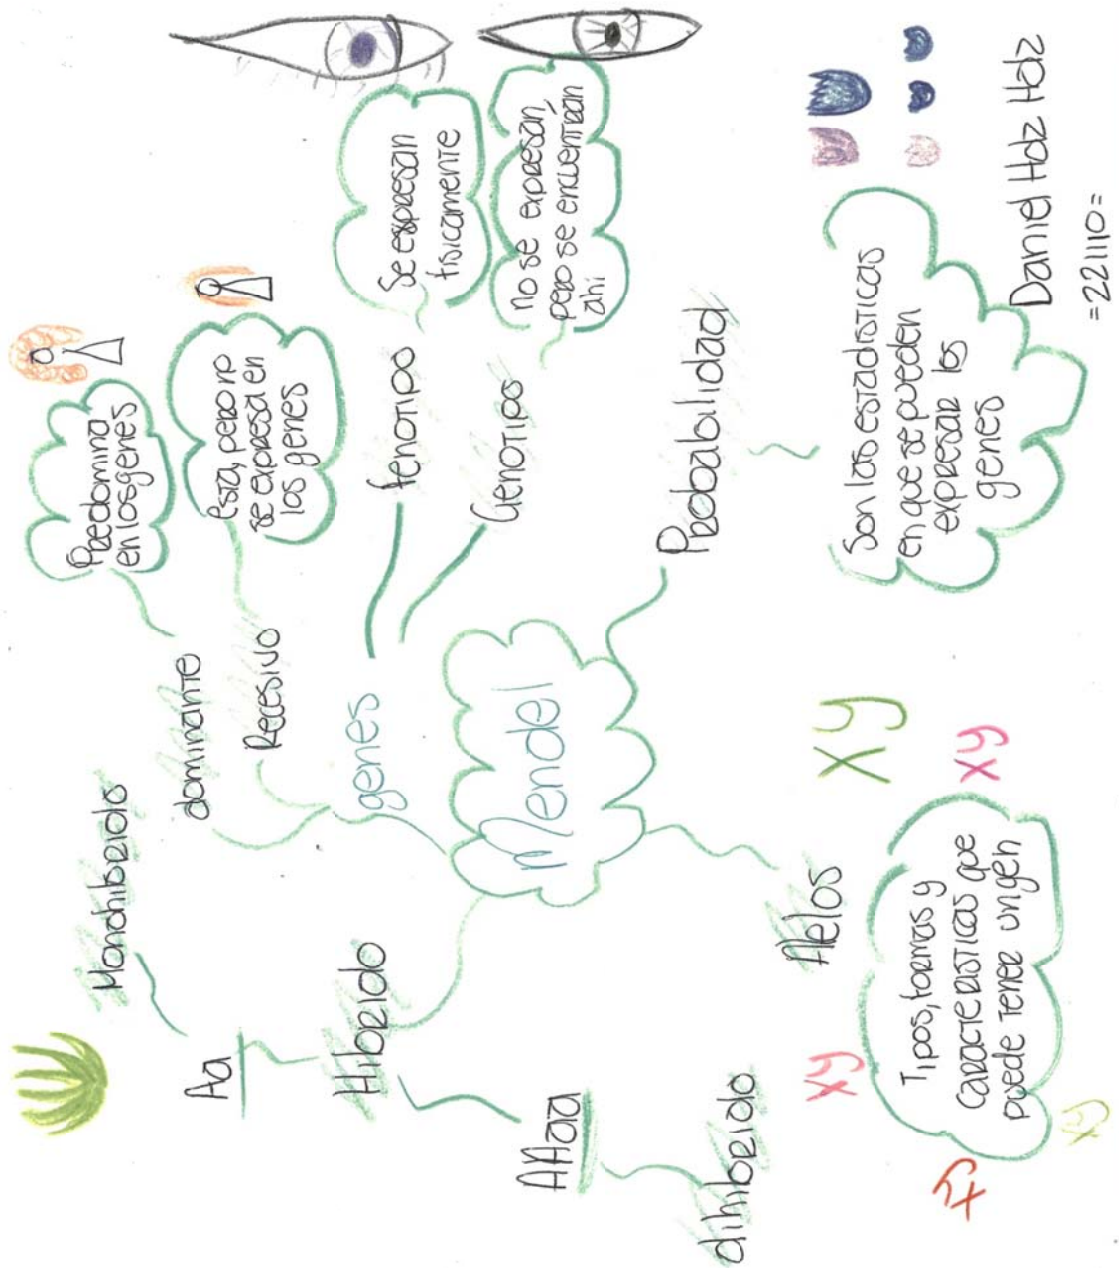 Mendel
genes
dominante
Predomina
en los genes
Recesivo
esta, pero no
se expresa en
los genes
fenotipo
Se espresan
fisicamente
Genotipo
no se expresan,
pero se encuentran
ahi
Probabilidad
Son las estadisticas
en que se pueden
expresar los
genes
Alelos
Tipos, formas y
caracteristicas que
puede tener un gen
xy
xy
xy
xy
xy
Hibrido
Aa
Monohibrido
AAaa
dihibrido
Daniel Holz Holz
=221110=